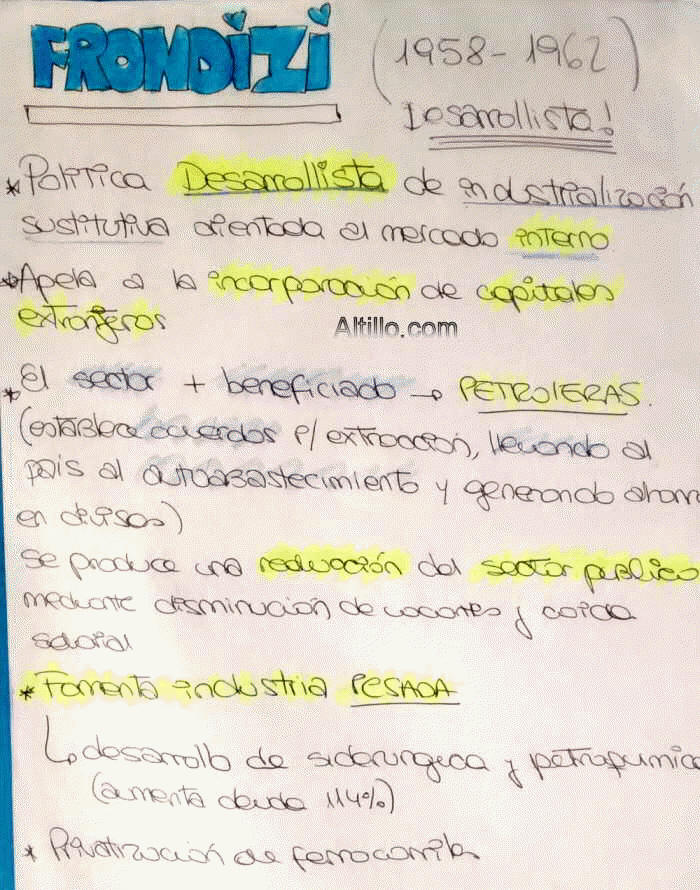 FRONDIZI (1958-1962)
Desarrollista!
* Política Desarrollista de industrialización
sustitutiva orientada al mercado interno.
* Apela a la incorporación de capitales
extranjeros
Altillo.com
* El sector + beneficiado → PETROLERAS.
(establece acuerdos p/ extracción, llevando al
país al autoabastecimiento y generando ahorro
en divisas)
Se produce una reducción del sector público
mediante disminución de vacantes y caída
salarial
* Fomenta industria PESADA
↳ desarrollo de siderurgica y petroquímica
(aumenta deuda 114%)
* Privatización de ferrocarriles